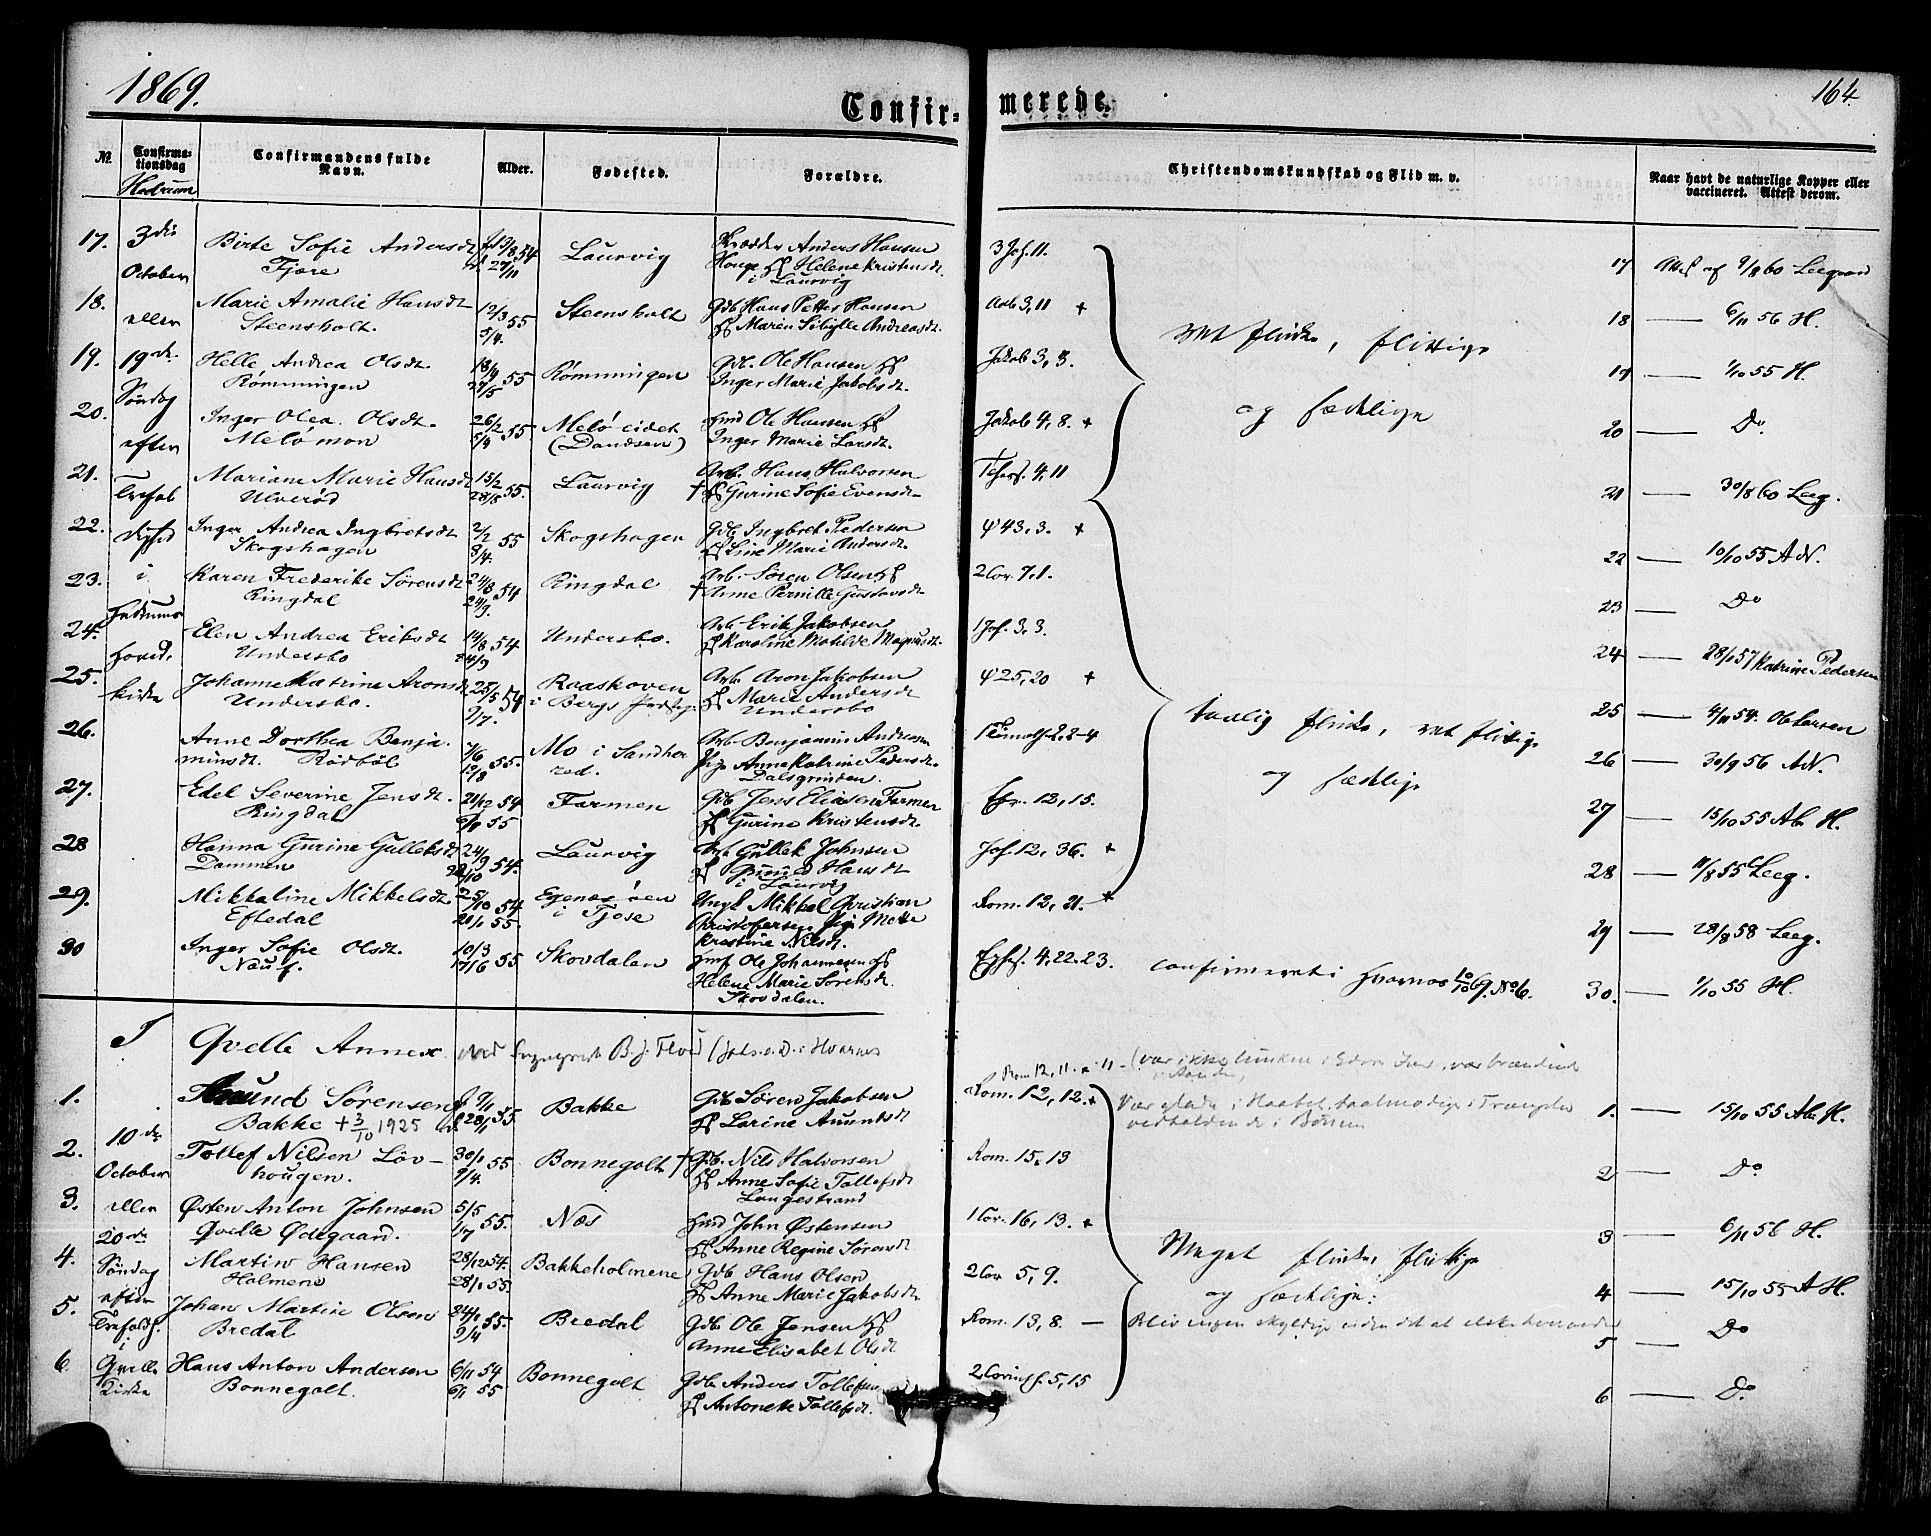 1869.
164.
Confir- merede.
№
Confirma-
tionsdag
Hedrum
Confirmandens fulde
Navn.
Alder.
Fødested.
Forældre.
Christendomskundskab og Flid m. v.
Naar havt de naturlige Kopper eller
vaccineret. Attest derom.
3die
October
eller
19de
Søndag
efter
Trefol
i
Hedrums
Hoved-
kirke
17. Birte Sofie Andersdt 54 Laurvig Skrædder Anders Hansen 3 Joh. 11. 17 Attest af 9/8 60 Leegaard
Fjøre 27/11 Houge Helene Kristensdt
i Laurvig
18. Marie Amalie Hansdt 12/3 55 Steensholt Gdb Hans Petter Hansen 3, 11 + 18 — 6/11 56 H.
Steensholt. 5/4. Maren Sibylle Andreasdt
19. Helle Andrea Olsdt. 55 Rømmingen Gdb. Ole Hansen Jakob 3, 3. 19 — 1/10 55 H.
Rømmingen 27/5 Inger Marie Jakobsdt.
20. Inger Olea Olsdt. 26/2 55. Meløeidet Hmd Ole Hansen Jakob 4, 8. + 20 — Do
Melømon 5/4 (Dandsen) Inger Marie Larsdt.
21. Mariane Marie Hansdt 15/2 55. Laurvig Arb. Hans Halvorsen 4, 11 21 — 30/8 60 Leeg.
Ulverød 28/8 † Gurine Sofie Evensdt
ret flinke, flittige
og sædelige
22. Inger Andrea Ingbretsdt 2/2 55 Skogshagen Gdb Ingbret Pedersen ψ 43, 3. + 22 — 10/10 55 AN.
Skogshagen 8/4. Line Marie Andersdt.
23. Karen Frederike Sørensdt 24/8 54 Ringdal Arb. Søren Olsen 2 Cor. 7, 1. 23 — Do
Ringdal 24/9. † Anne Pernille Gustavsdt
24. Elen Andrea Eriksdt 14/8 54 Undersbo. Arb. Erik Jakobsen 1 Joh. 3, 3. 24 — 28/1 57 Katrine Pedersen
Undersbo 24/9 Karoline Matilde Magnusdt.
25. Johanne Katrine Aronsdt 25/5 54 Raaskoven Arb. Aron Jakobsen ψ 25, 20 + 25 — 4/11 54. Ob Larsen
Undersbo. 9/7. i Bergs Marie Andersdt
Undersbo
26. Anne Dorthea Benja- 55. Mo i Sandhe Arb. Benjamin Andersen 2. 2-4 26 — 30/9 56 AN.
minsdt. Rødbøl 12/8 red. Pige Anne Katrine Pedersdt.
Dalsgrinden.
27. Edel Severine Jensdt. 21/12 54 Farmen Gdb Jens Eliasen Farmen 12, 15. 27 — 15/10 55 Ab H.
Ringdal 55 Gurine Kristensdt.
28 Hanna Gurine Gulleksdt 24/9 54. Laurvig Arb Gullek Johnsen Joh. 12, 36. + 28 — 11/8 55 Leeg.
Dammen Hansdt
i Laurvig
29. Mikkaline Mikkelsdt 25/10 54 Egenæsøen Ungk Mikkel Christian Rom. 12, 21. + 29 — 28/8 58 Leeg.
Eftedal 21/1 55. i Tjose Kristofersen Pige Mette
Kristine Nilsdt.
taalig flinke, ret flittige
og sædelige
30 Inger Sofie Olsdt. 10/3 55 Skovdalen Ole Johannesen Ephes. 4. 22. 23. confirmeret i Hvarnæs 10/10 69. No 6. 30. — 1/10 55 H.
Nauf. 17/6 Helene Marie Sørensdt.
Skovdalen.
I Qvelle Annex ved Sogneprest B. J. i Hvarnes
10de
October
eller
20de
Søndag
efter
Trefoldh.
i
Qvelle
Kirke
Rom 12, 11 (vær ikke lunkne i Eders Iver, vær brændende
i Aanden,
1. Amund Sørensen 9/1 55 Bakke Gdb Søren Jakobsen Rom. 12, 12. + Vær glade i Haabet, taalmodige i Trængslen 1. — 15/10 55 Ab H.
Bakke + 3/10 1925 28/1 Larine Amundsdt vedholdende i Bønnen
2. Tollef Nilsen Løv- 30/1 55 Bonnegolt † Gdb. Nils Halvorsen Rom. 15, 13 2 — Do
hougen. 9/4. Anne Sofie Tollefsdt
Langestrand
3. Østen Anton Johnsen 5/5 55. Næs Hmd John Østensen 1 Cor. 16, 13. + 3 — 6/11 56 H.
Qvelle Ødegaard. 1/7 Anne Regine Sørensdt
4. Martin Hansen 28/12 54. Bakkeholmene Gdb Hans Olsen 2 Cor 5, 9. 4 — 15/10 55 A H.
Holmene 28/1 55. Anne Marie Jakobsdt
Meget flinke, flittige
og sædelige.
5. Johan Martin Olsen 24/1 55. Bredal Gdb Ole Jensen Rom. 13, 8. — Bliv ingen skyldige uden det at elske hverandre 5 — Do
Bredal 9/4 Anne Elisabet Olsdt
6. Hans Anton Andersen 6/11 54 Bonnegolt Gdb Anders Tollefsen 2 Corinth. 5, 15 6 — Do
Bonnegolt. 6/1 55 Antonette Tollefsdt.